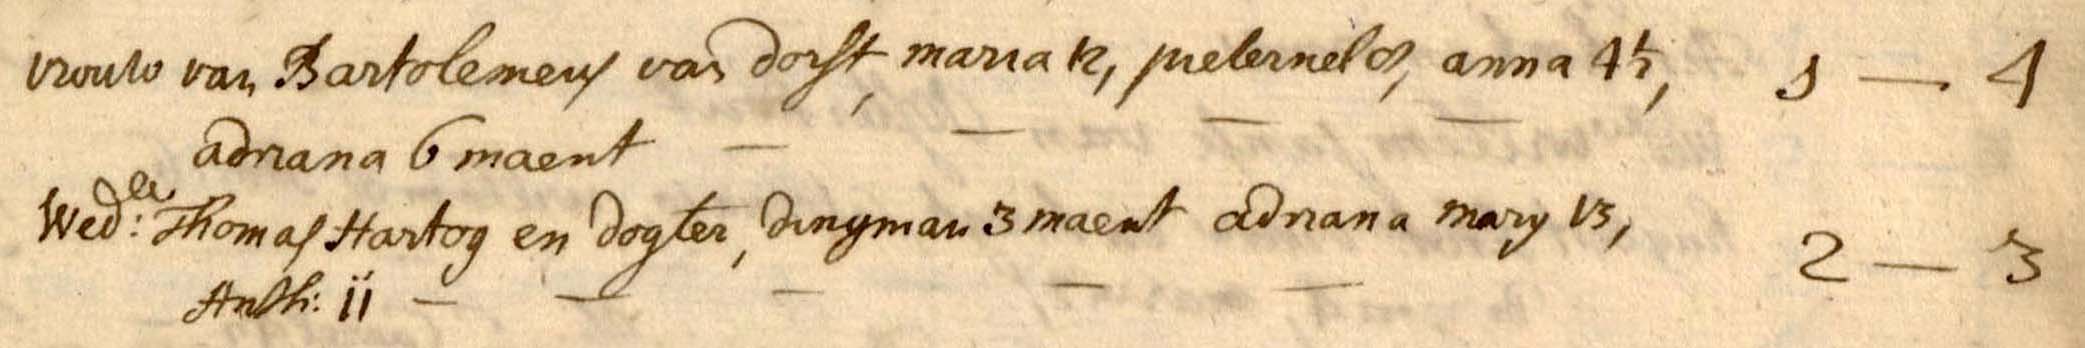 vrouw van Bartolemeus van dorst, maria 12, peternel 8, anna 4½, 1 — 4
adriana 6 maent —
Wed:e Thomas Hartog en dogter, dingman 3 maent adriana mary 13, 2 — 3
Anth: ii — — — — —